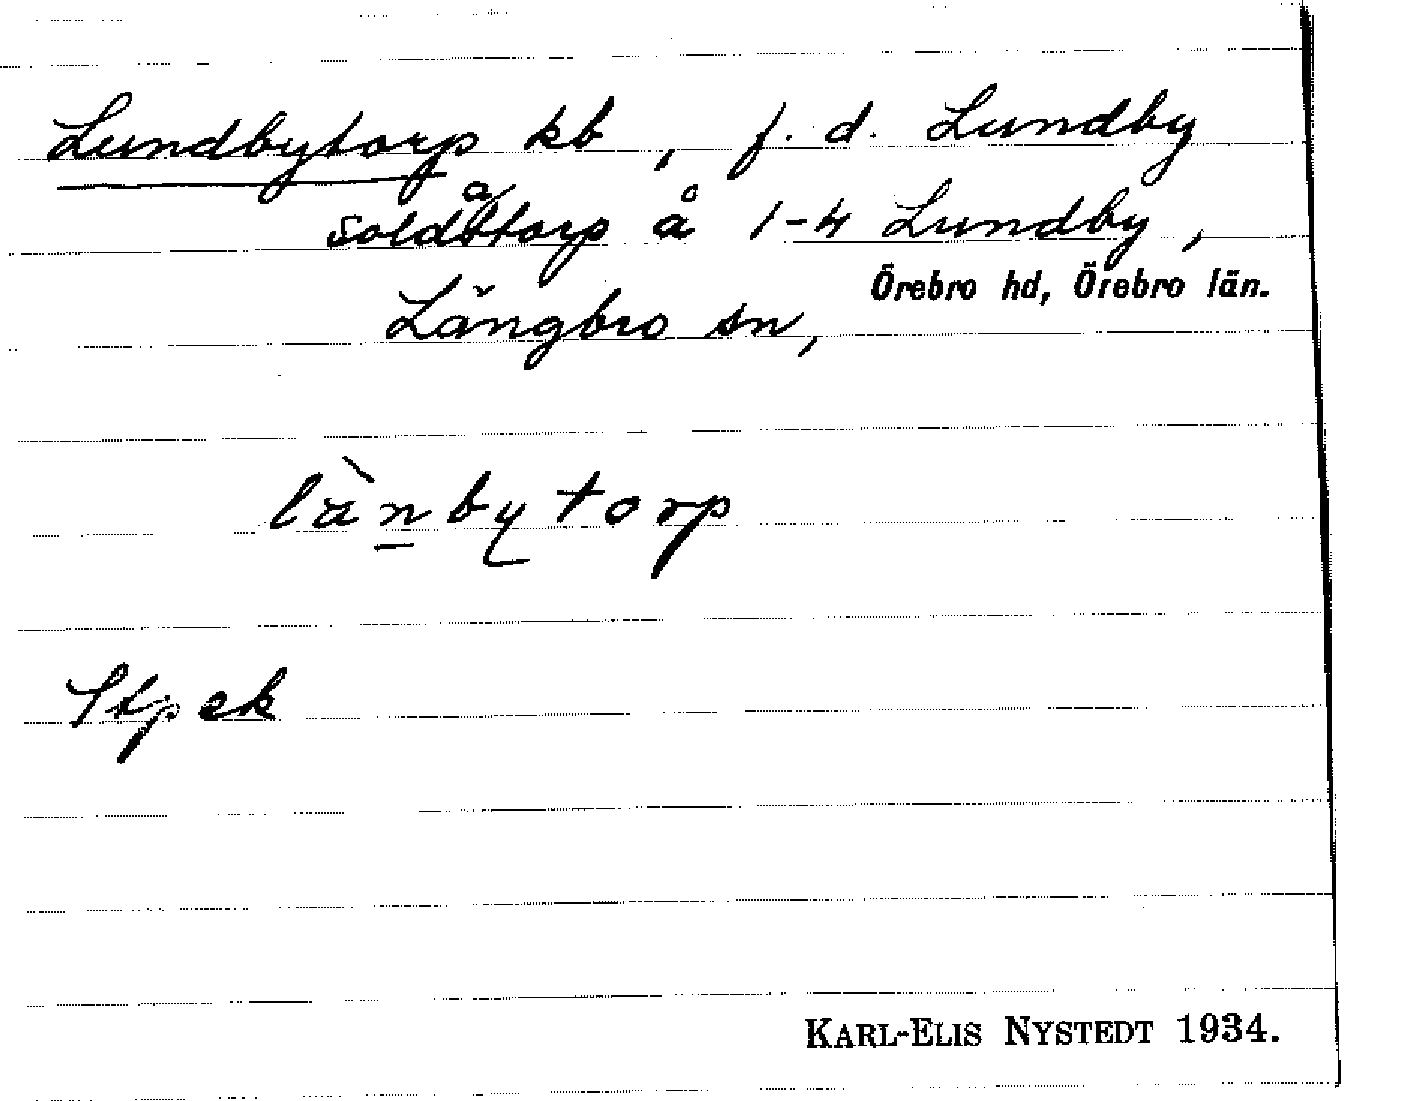 Lundbytorp kb, f. d. Lundby
soldattorp å 1-4 Lundby,
Örebro hd, Örebro län.
Längbro sn,
lànbytorp
KARL-ELIS NYSTEDT 1934.